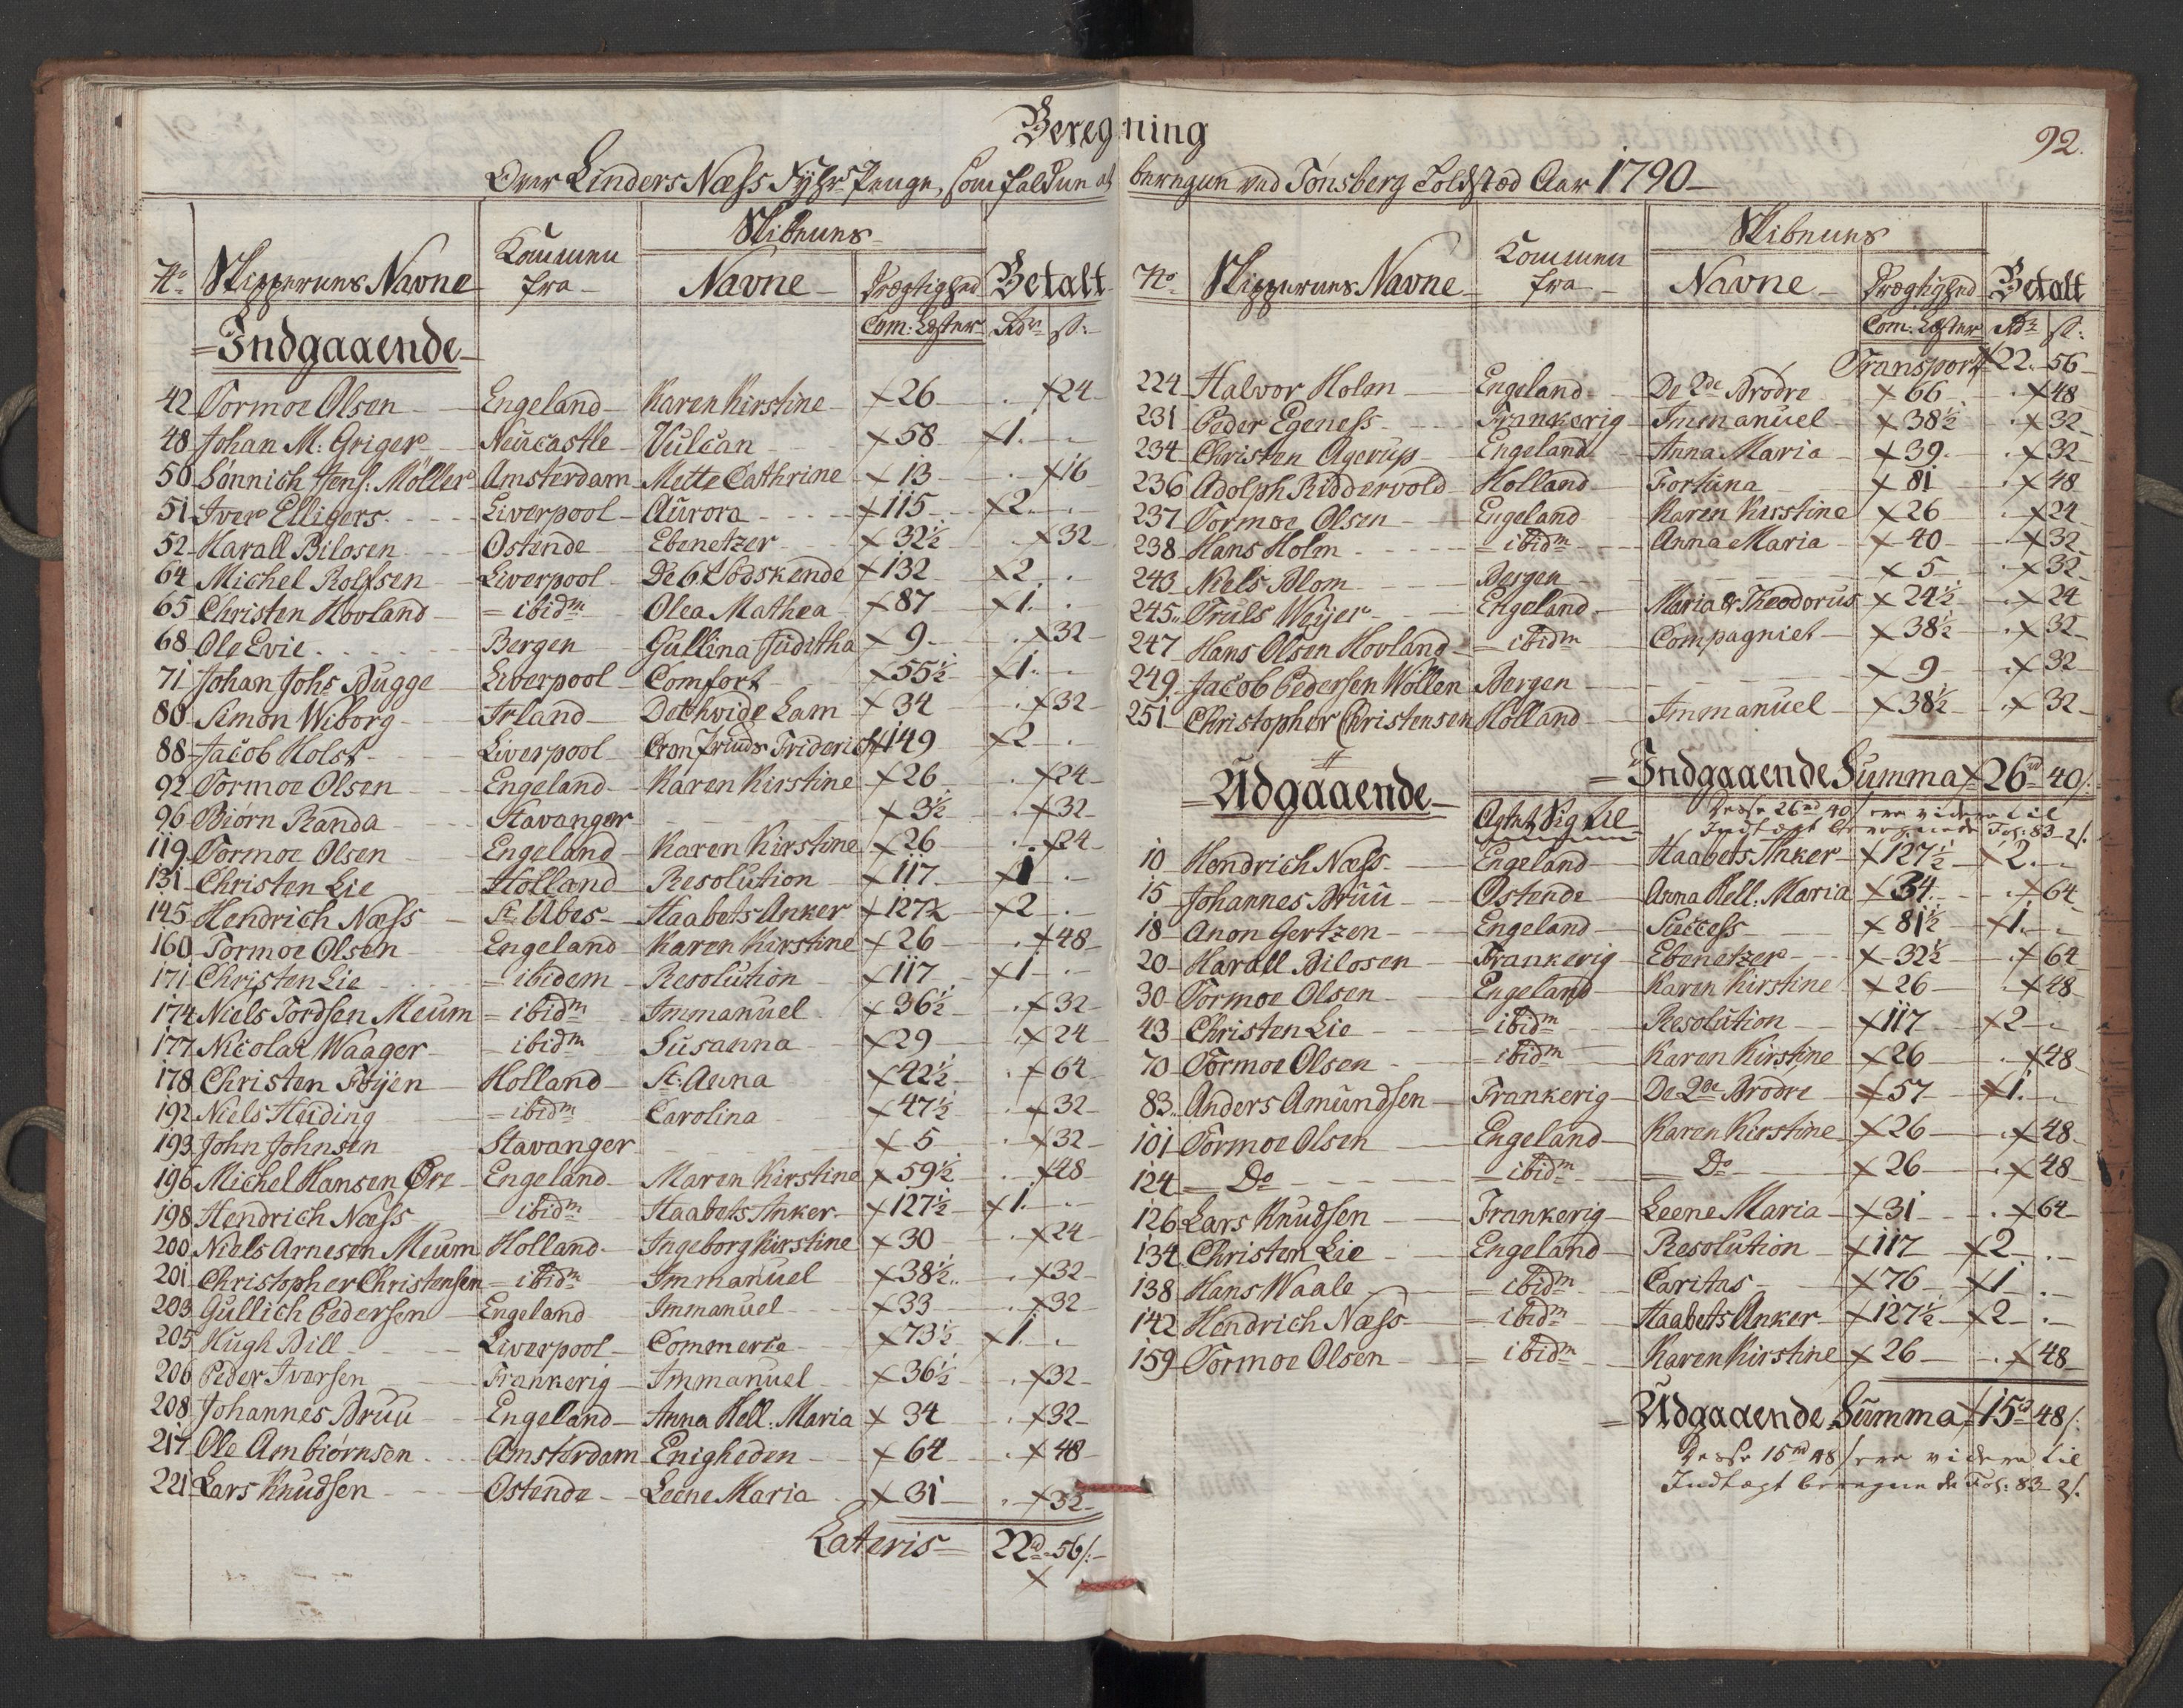 Beregning
92.
Over Linders Næss Fyhrs Penge, som falden at beregnes ved Tønsberg Toldsted Aar 1790
No Skippernes Navne Kommen fra Skibenes Navne Drægtighed Com: Læster Betalt Rdr s:
Indgaaende
42 Tormoe Olsen Engeland Karen Kirstine 26 . 24
48 Johan M: Griger Neucastle Vulcan 58 1. .
50 Sønnich Jens: Møller Amsterdam Mette Cathrine 13 . 16
51 Iver Elligers Liverpool Aurora 115 2. .
52 Harall Bilosen Ostende Ebenetzer 32½ . 32
64 Michel Rolfsen Liverpool De 6 Sødskende 132 2. .
65 Christen Hovland = ibidm Olea Mathea 87 1. .
68 Ole Evie Bergen Gullina Juditha 9 . 32
71 Johan Johs Bugge Liverpool Comfort 55½ 1. .
80 Simon Wiborg Irland Det hvide Lam 34 . 32
88 Jacob Holst Liverpool Cron Prinds Friderich 149 2 .
92 Tormoe Olsen Engeland Karen Kirstine 26 . 24
96 Biørn Randa Stavanger 3½ . 32
119 Tormoe Olsen Engeland Karen Kirstine 26 . 24
131 Christen Lie Holland Resolution 117 1 .
145 Hendrich Næss St: Ubes Haabets Anker 127½ 2 .
160 Tormoe Olsen Engeland Karen Kirstine 26 . 48
171 Christen Lie = ibidem Resolution 117 1 .
174 Niels Tordsen Meum = ibidm Immanuel 36½ . 32
177 Nicolai Waager = ibidm Susanna 29 . 24
178 Christen Føyen Holland St: Anna 42½ . 64
192 Niels Heiding = ibidm Carolina 47½ . 32
193 John Johnsen Stavanger 5 . 32
196 Michel Hansen Øre Engeland Maren Kirstine 59½ . 48
198 Hendrich Næss = ibidm Haabets Anker 127½ 1. .
200 Niels Arnesen Meum Holland Ingeborg Kirstine 30 . 24
201 Christopher Christensen = ibidm Immanuel 38½ . 32
203 Gullich Pedersen Engeland Immanuel 33 . 32
205 Hugh Bill Liverpool Commerce 73½ 1. .
206 Peder Iversen Frankerig Immanuel 36½ . 32
208 Johannes Bruu Engeland Anna Hell: Maria 34 . 32
217 Ole Ambiørnsen Amsterdam Enigheden 64 . 48
221 Lars Knudsen Ostende Leene Maria 31 . 32
Lateris 22rd 56s:
No Skippernes Navne Kommen fra Skibenes Navne Drægtighed Com: Læster Betalt Rdr s:
Transport 22. 56
224 Halvor Holm Engeland De 2de Brødre 66 . 48
231 Peder Egeness Frankerig Immanuel 38½ . 32
234 Christen Agerup Engeland Anna Maria 39 . 32
236 Adolph Riddervold Holland Fortuna 81 . 48
237 Tormoe Olsen Engeland Karen Kirstine 26 . 24
238 Hans Holm = ibidm Anna Maria 40 . 32
243 Niels Blom Bergen 5 . 32
245 Truls Weyer Engeland Maria & Theodorus 24½ . 24
247 Hans Olsen Hovland = ibidm Compagniet 38½ . 32
249 Jacob Pedersen Wollen Bergen 9 . 32
251 Christopher Christensen Holland Immanuel 38½ . 32
Indgaaende Summa 26rd 40s:
Udgaaende
Agtet Sig til
Desse 26rd 40s ere videre til
Indtægt beregnede Fol: 83
10 Hendrich Næss Engeland Haabets Anker 127½ 2. .
15 Johannes Bruu Ostende Anna Hell: Maria 34 . 64
18 Anon Gertzen Engeland Success 81½ 1. .
20 Harall Bilosen Frankerig Ebenetzer 32½ . 64
30 Tormoe Olsen Engeland Karen Kirstine 26 . 48
43 Christen Lie = ibidm Resolution 117 2 .
70 Tormoe Olsen = ibidm Karen Kirstine 26 . 48
83 Anders Amundsen Frankerig De 2de Brødre 57 1. .
101 Tormoe Olsen Engeland Karen Kirstine 26 . 48
124 = Do = ibidm Do 26 . 48
126 Lars Knudsen Frankerig Leene Maria 31 . 64
134 Christen Lie Engeland Resolution 117 2 .
138 Hans Waale = ibidm Caritas 76 1 .
142 Hendrich Næss = ibidm Haabets Anker 127½ 2 .
159 Tormoe Olsen = ibidm Karen Kirstine 26 . 48
= Udgaaende Summa 15rd 48s:
Desse 15rd 48s ere videre til
Indtægt beregnede Fol: 83